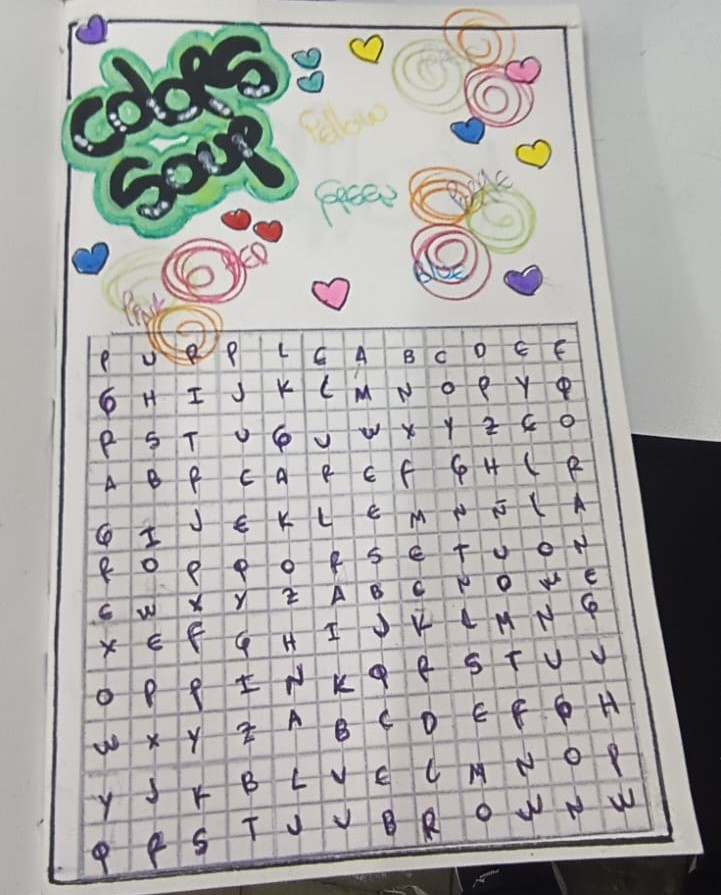 Colors
Soup
Yellow
GREEN
RED
BLUE
PINK
P U R P L E A B C D E F
G H I J K L M N O P Y Q
R S T U G V W X Y Z E O
A B R E A R E F G H L R
G I J E K L E M N Ñ L A
R O P Q O R S E T U O N
E W X Y Z A B C N D W E
X E F G H I J K L M N G
O P P I N K Q R S T U V
W X Y Z A B C D E F G H
Y J K B L U E L M N O P
Q R S T U V B R O W N W